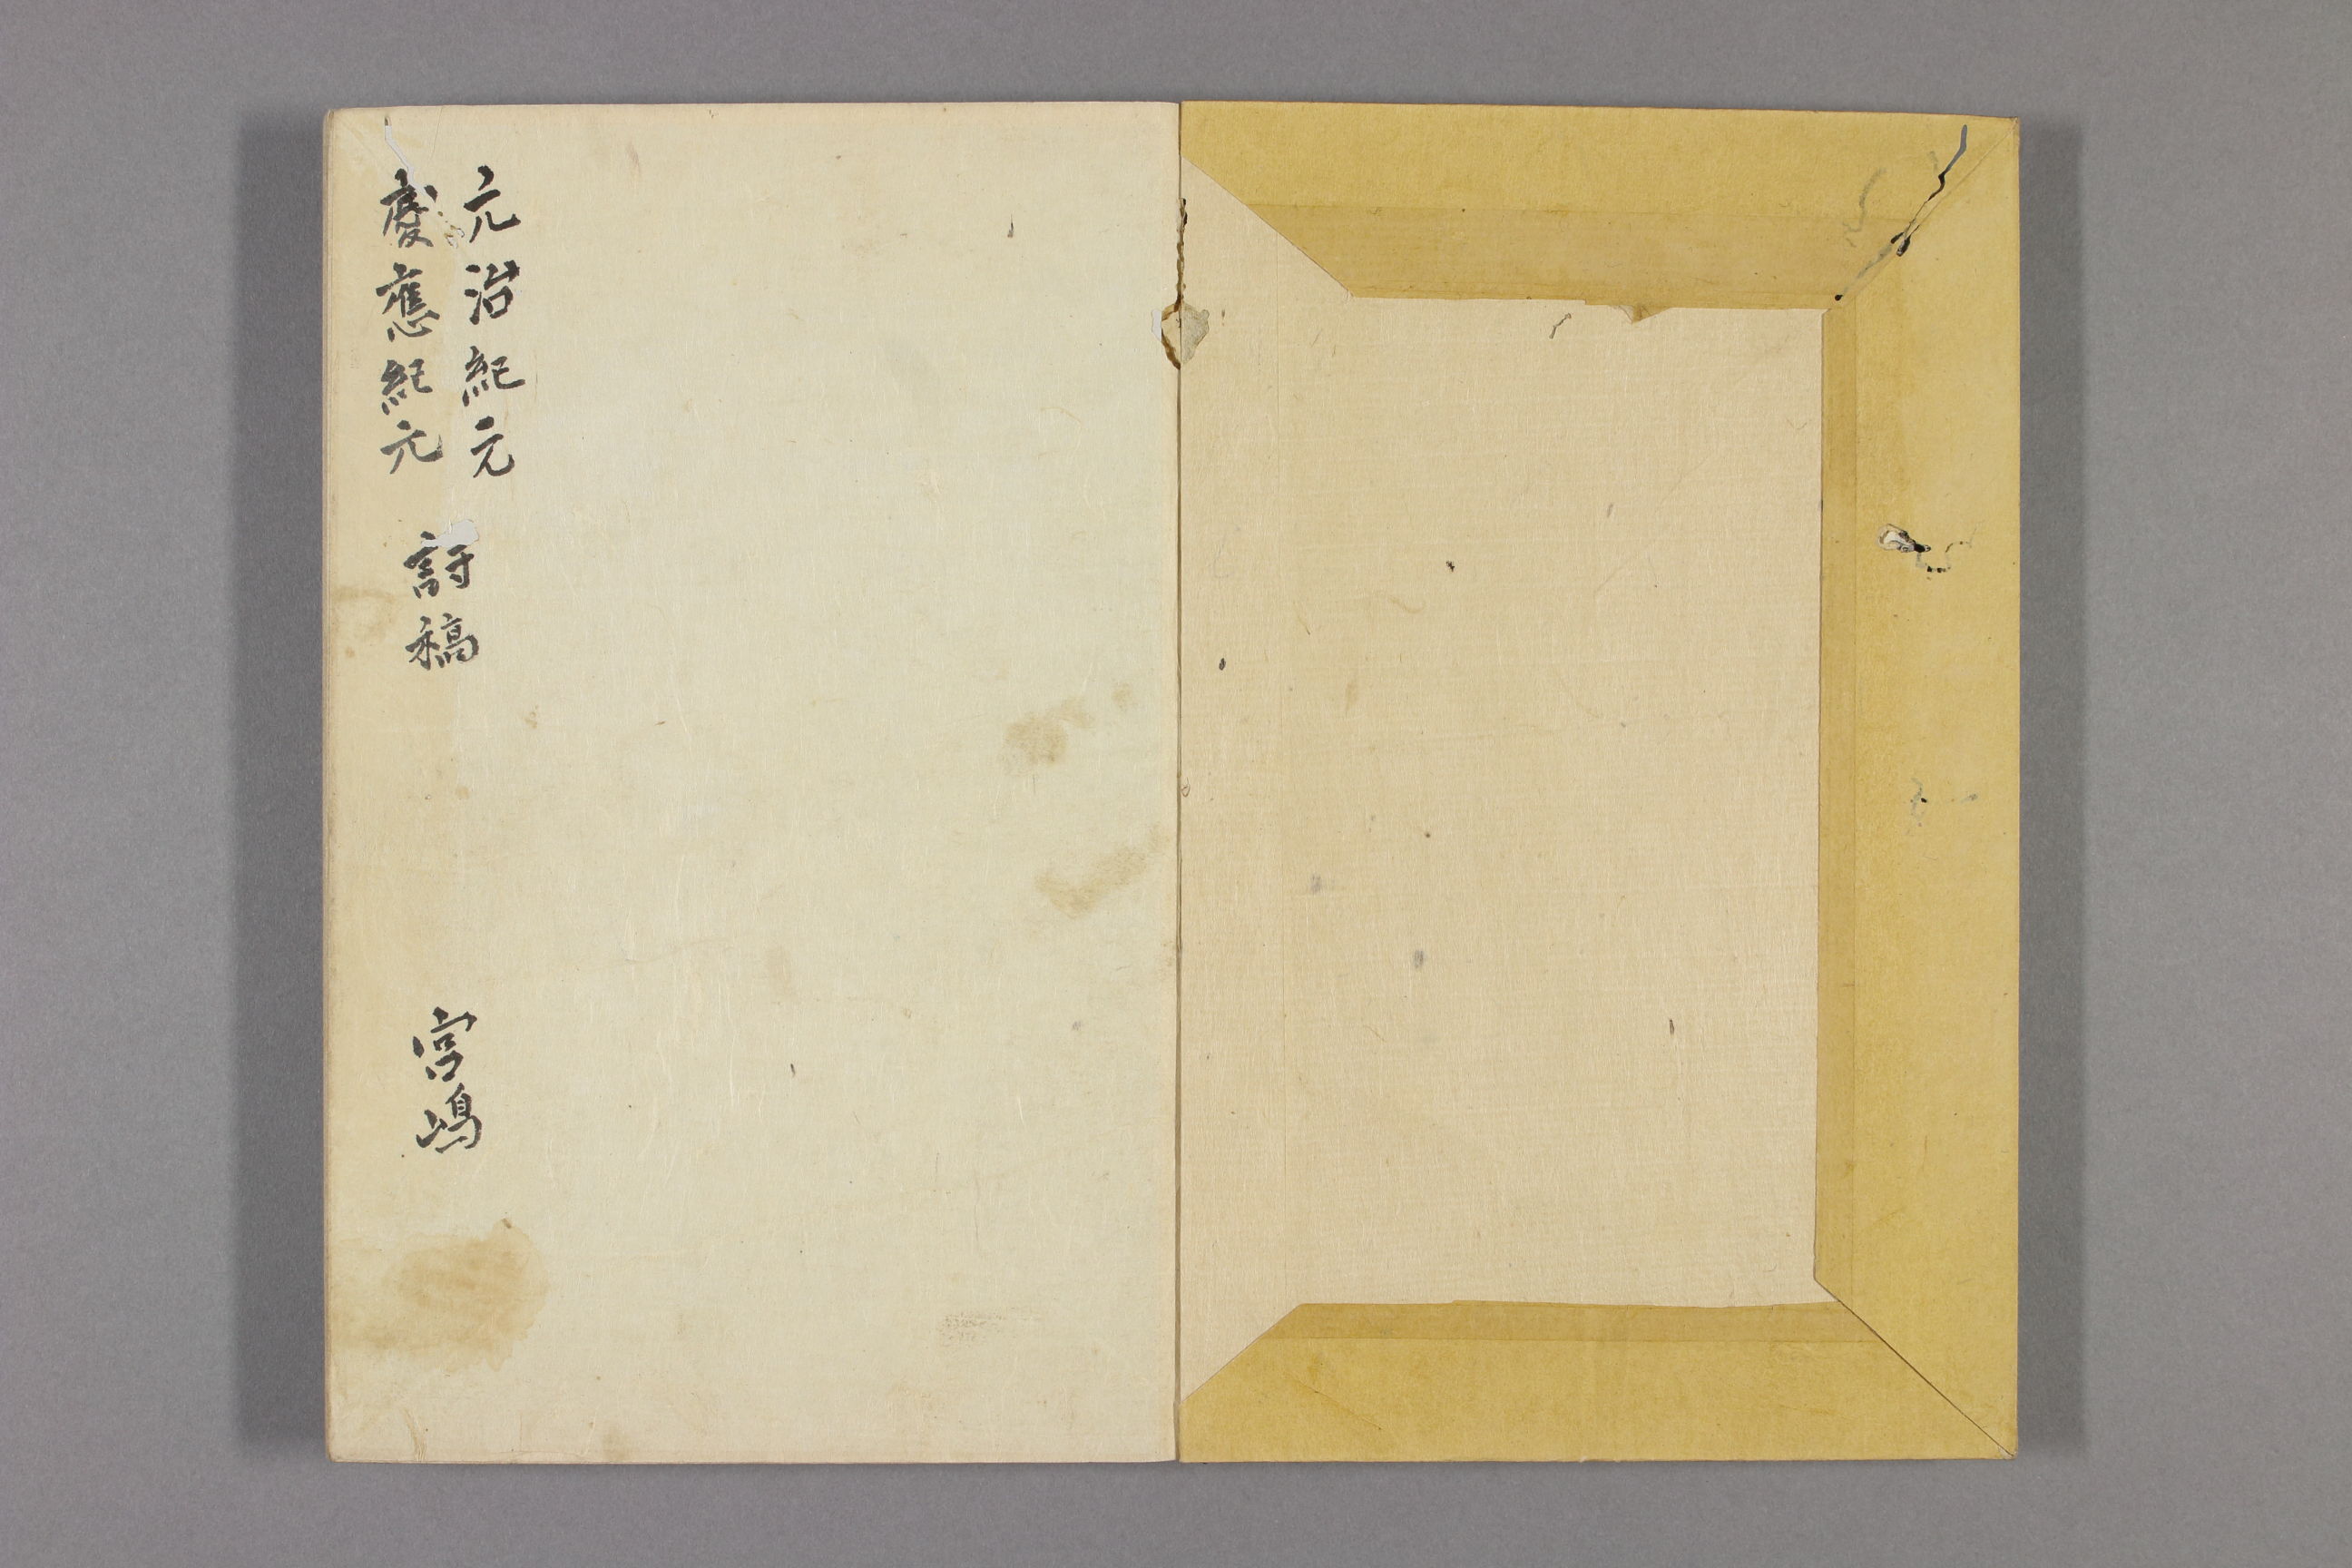 元治紀元
慶應紀元
詩稿
宮嶋